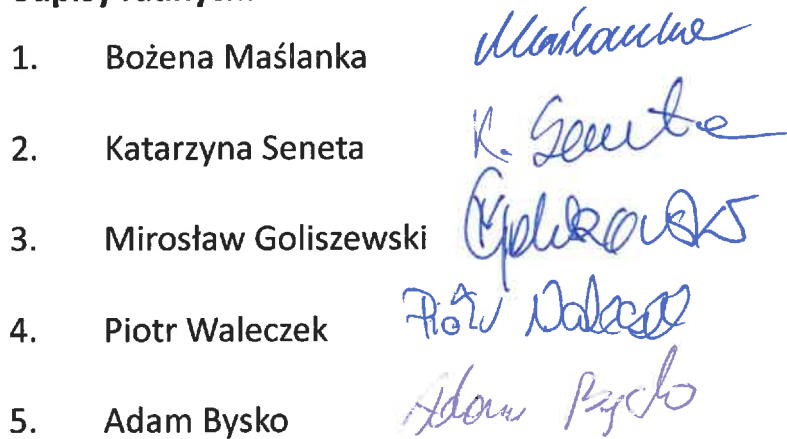 1. Bożena Maślanka Maślanka
2. Katarzyna Seneta K. Seneta
3. Mirosław Goliszewski
4. Piotr Waleczek Piotr Waleczek
5. Adam Bysko Adam Bysko